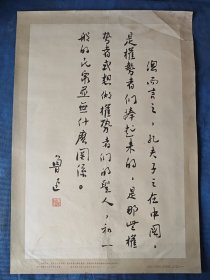 总而言之，孔夫子之在中国，
是权势者们捧起来的，是那些权
势者或想做权势者们的圣人，和一
般的民众并无什么关系。
鲁迅